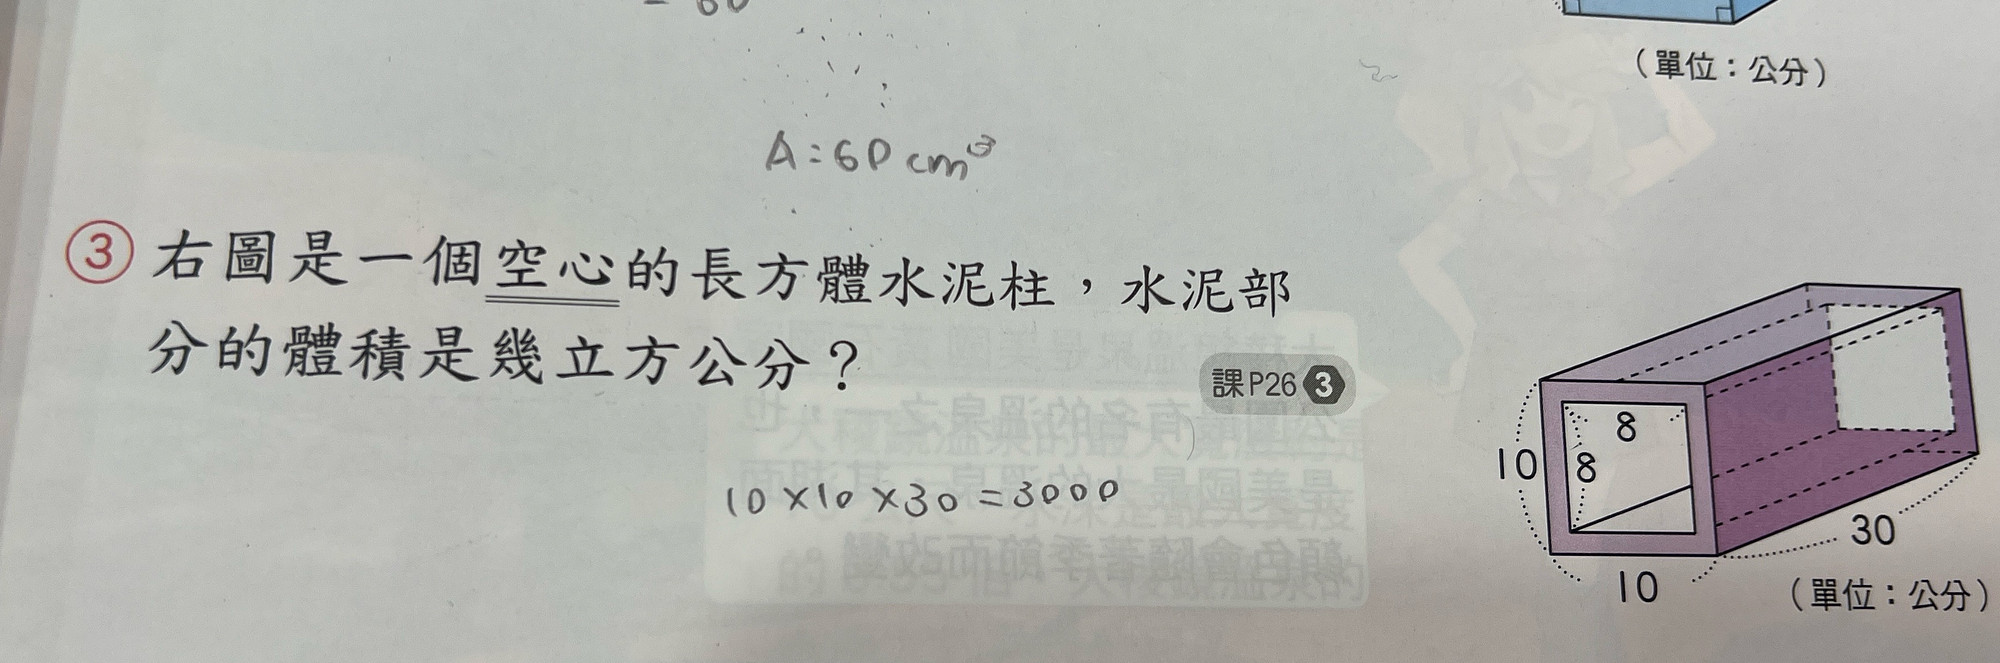 = 60
(單位：公分)
A:60 cm³
③ 右圖是一個空心的長方體水泥柱，水泥部
分的體積是幾立方公分？
課P26 3
10×10×30=3000
8
10
8
30
10
(單位：公分)